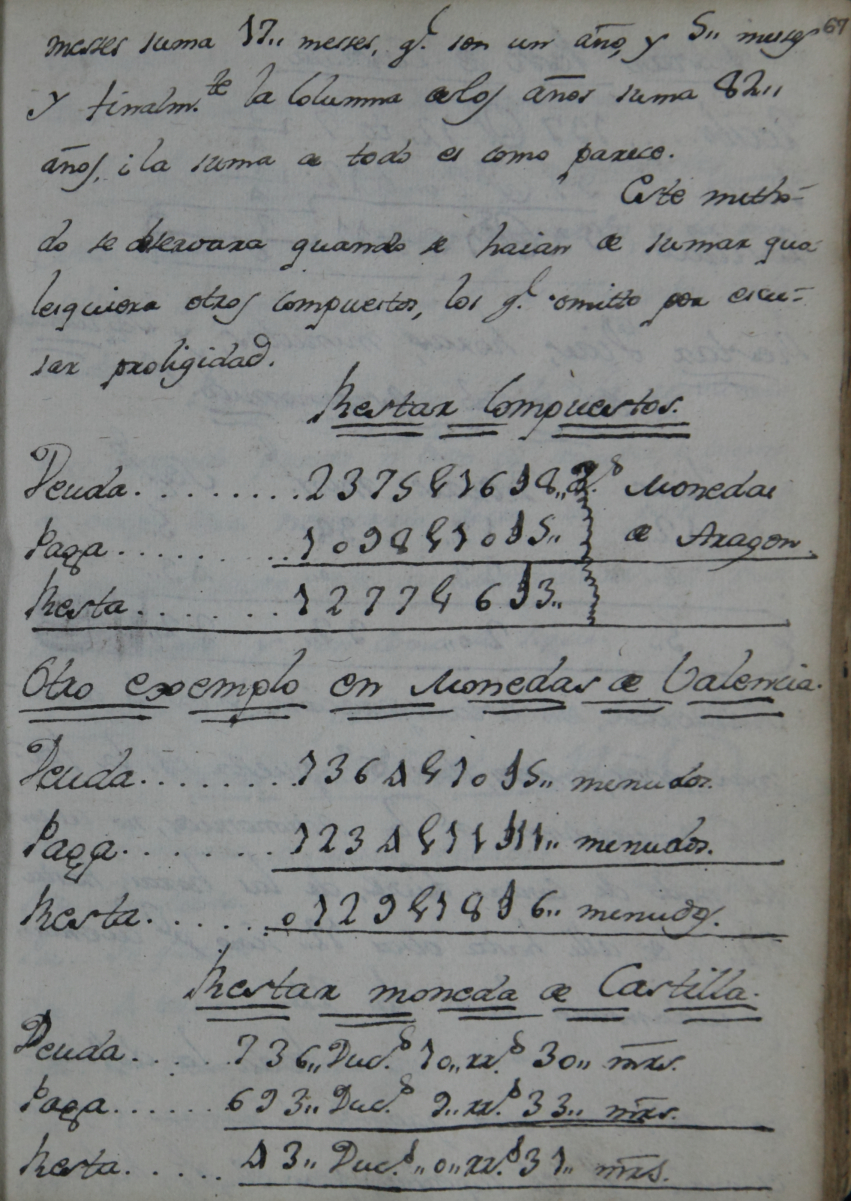 67
messes suma 17,, messes, q.^e son un año, y 5,, messes
y finalm.^te la Columna delos años suma 82,,
años, i la suma de todo es como parece.
Este metho-
do se observara quando se haian de sumar qua-
lesquiera otros Compuestos, los q.^e omitto por escu-
sar proligidad.
Restar Compuestos.
Deuda.........2375 £ 16 ſ 8,, d.^s Monedas
Paga.........1098 £ 10 ſ 5,, de Aragon.
Resta.........1277 £ 6 ſ 3,,
Otro exemplo en Monedas de Valencia.
Deuda........1364 £ 10 ſ 5,, menudos.
Paga........1234 £ 11 ſ 11,, menudos.
Resta........0129 £ 18 ſ 6,, menudos.
Restar moneda de Castilla.
Deuda.....736,, Duc.^s 10,, rr.^s 30,, mrs.
Paga......693,, Duc.^s 9,, rr.^s 33,, mrs.
Resta......43,, Duc.^s,, 0,, rr.^s 31,, mrs.